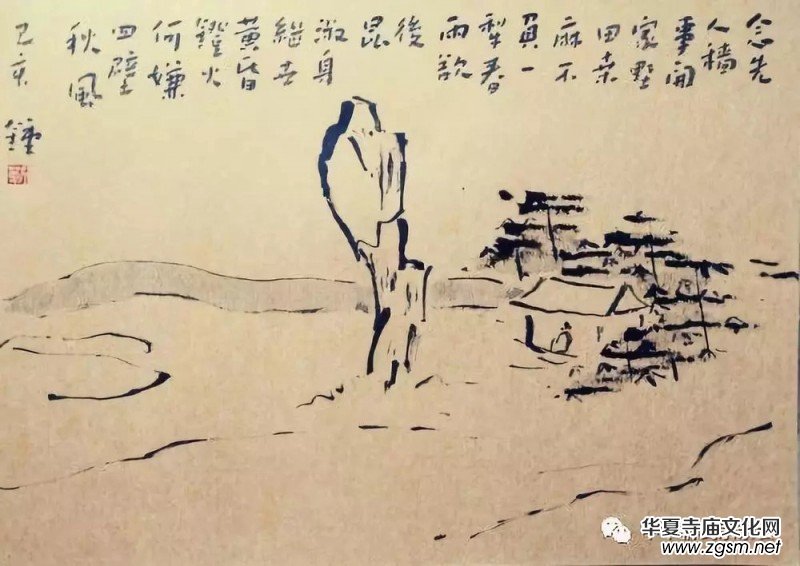 念先
人穡
事開
家墅
田桒
麻不
負一
犁春
雨欲
後
昆
淑身
繼世
黃昏
鐙火
何嫌
四壁
秋風
己亥
华夏寺庙文化网
www.zgsm.net